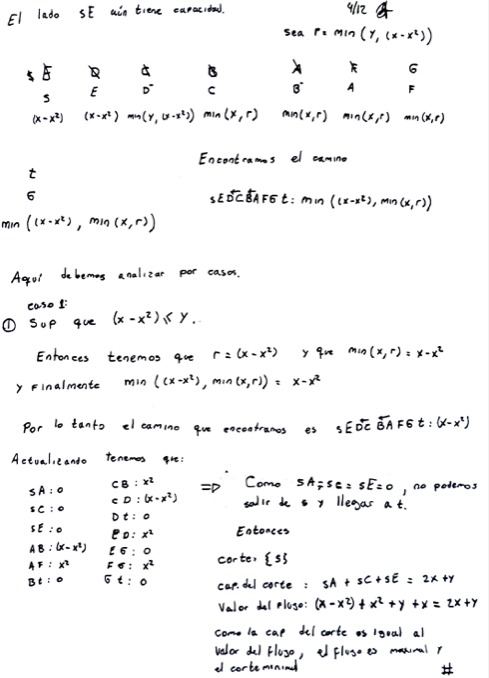 El lado sE aún tiene capacidad.
4/12
sea r = min (y, (x-x²))
s E D C B A F G
s E D⁻ C B⁻ A F
(x-x²) (x-x²) min(y, (x-x²)) min(x,r) min(x,r) min(x,r) min(x,r)
t
G
min ((x-x²), min(x,r))
Encontramos el camino
sEDCBAFGt: min ((x-x²), min(x,r))
Aquí debemos analizar por casos.
caso 1:
① Sup que (x-x²) ≤ y.
Entonces tenemos que r = (x-x²) y que min(x,r) = x-x²
y finalmente min ((x-x²), min(x,r)) = x-x²
Por lo tanto el camino que encontramos es sEDCBAFGt: (x-x²)
Actualizando tenemos que:
sA: 0 CB: x²
sC: 0 CD: (x-x²)
sE: 0 Dt: 0
AB: (x-x²) ED: x²
AF: x² EG: 0
Bt: 0 FG: x²
Gt: 0
=> Como sA = sC = sE = 0, no podemos
salir de s y llegar a t.
Entonces
corte: {s}
cap. del corte : sA + sC + sE = 2x+y
Valor del flujo: (x-x²) + x² + y + x = 2x+y
como la cap del corte es igual al
valor del flujo, el flujo es maximal y
el corte minimal #